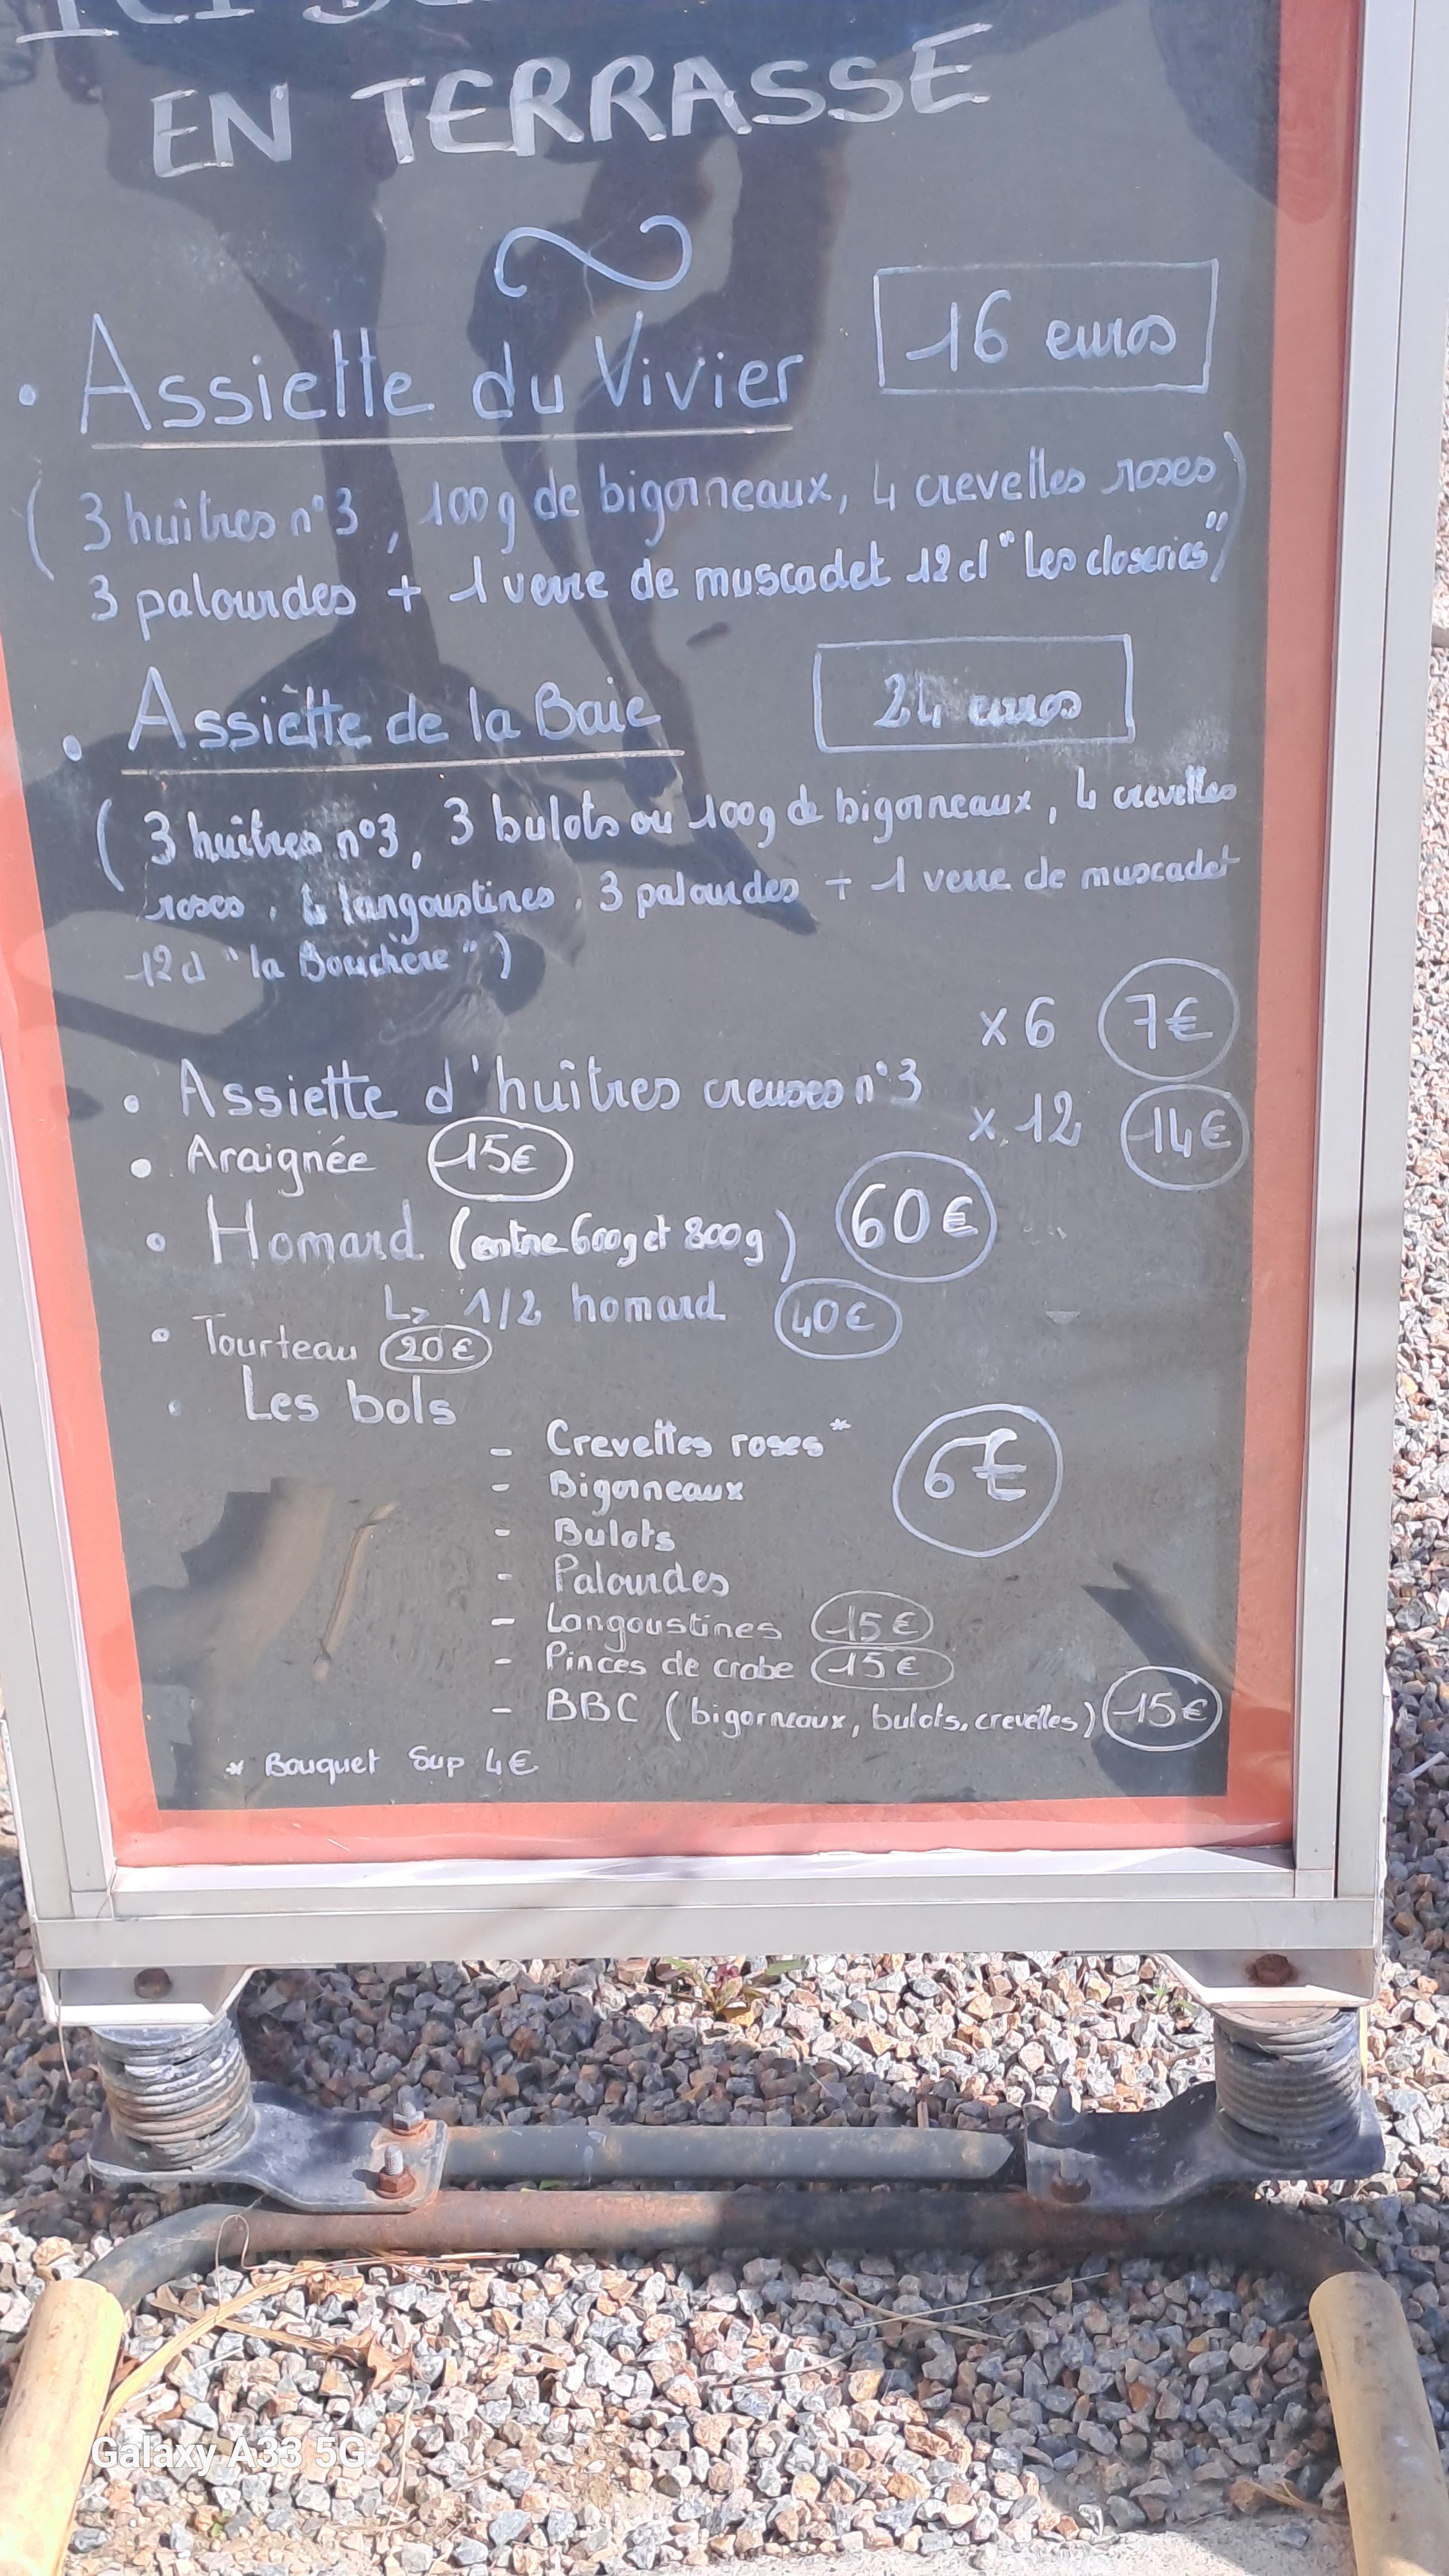 EN TERRASSE
• Assiette du Vivier 16 euros
(3 huîtres n°3, 100g de bigorneaux, 4 crevettes roses
3 palourdes + 1 verre de muscadet 12cl "Les closeries")
• Assiette de la Baie 24 euros
(3 huîtres n°3, 3 bulots ou 100g de bigorneaux, 4 crevettes
roses, 4 langoustines, 3 palourdes + 1 verre de muscadet
12cl "la Bouchère")
x6 7€
• Assiette d'huîtres creuses n°3
x12 14€
• Araignée 15€
• Homard (entre 600g et 800g) 60€
↳ 1/2 homard 40€
• Tourteau 20€
• Les bols
- Crevettes roses*
- Bigorneaux 6€
- Bulots
- Palourdes
- Langoustines 15€
- Pinces de crabe 15€
- BBC (bigorneaux, bulots, crevettes) 15€
* Bouquet Sup 4€
Galaxy A33 5G